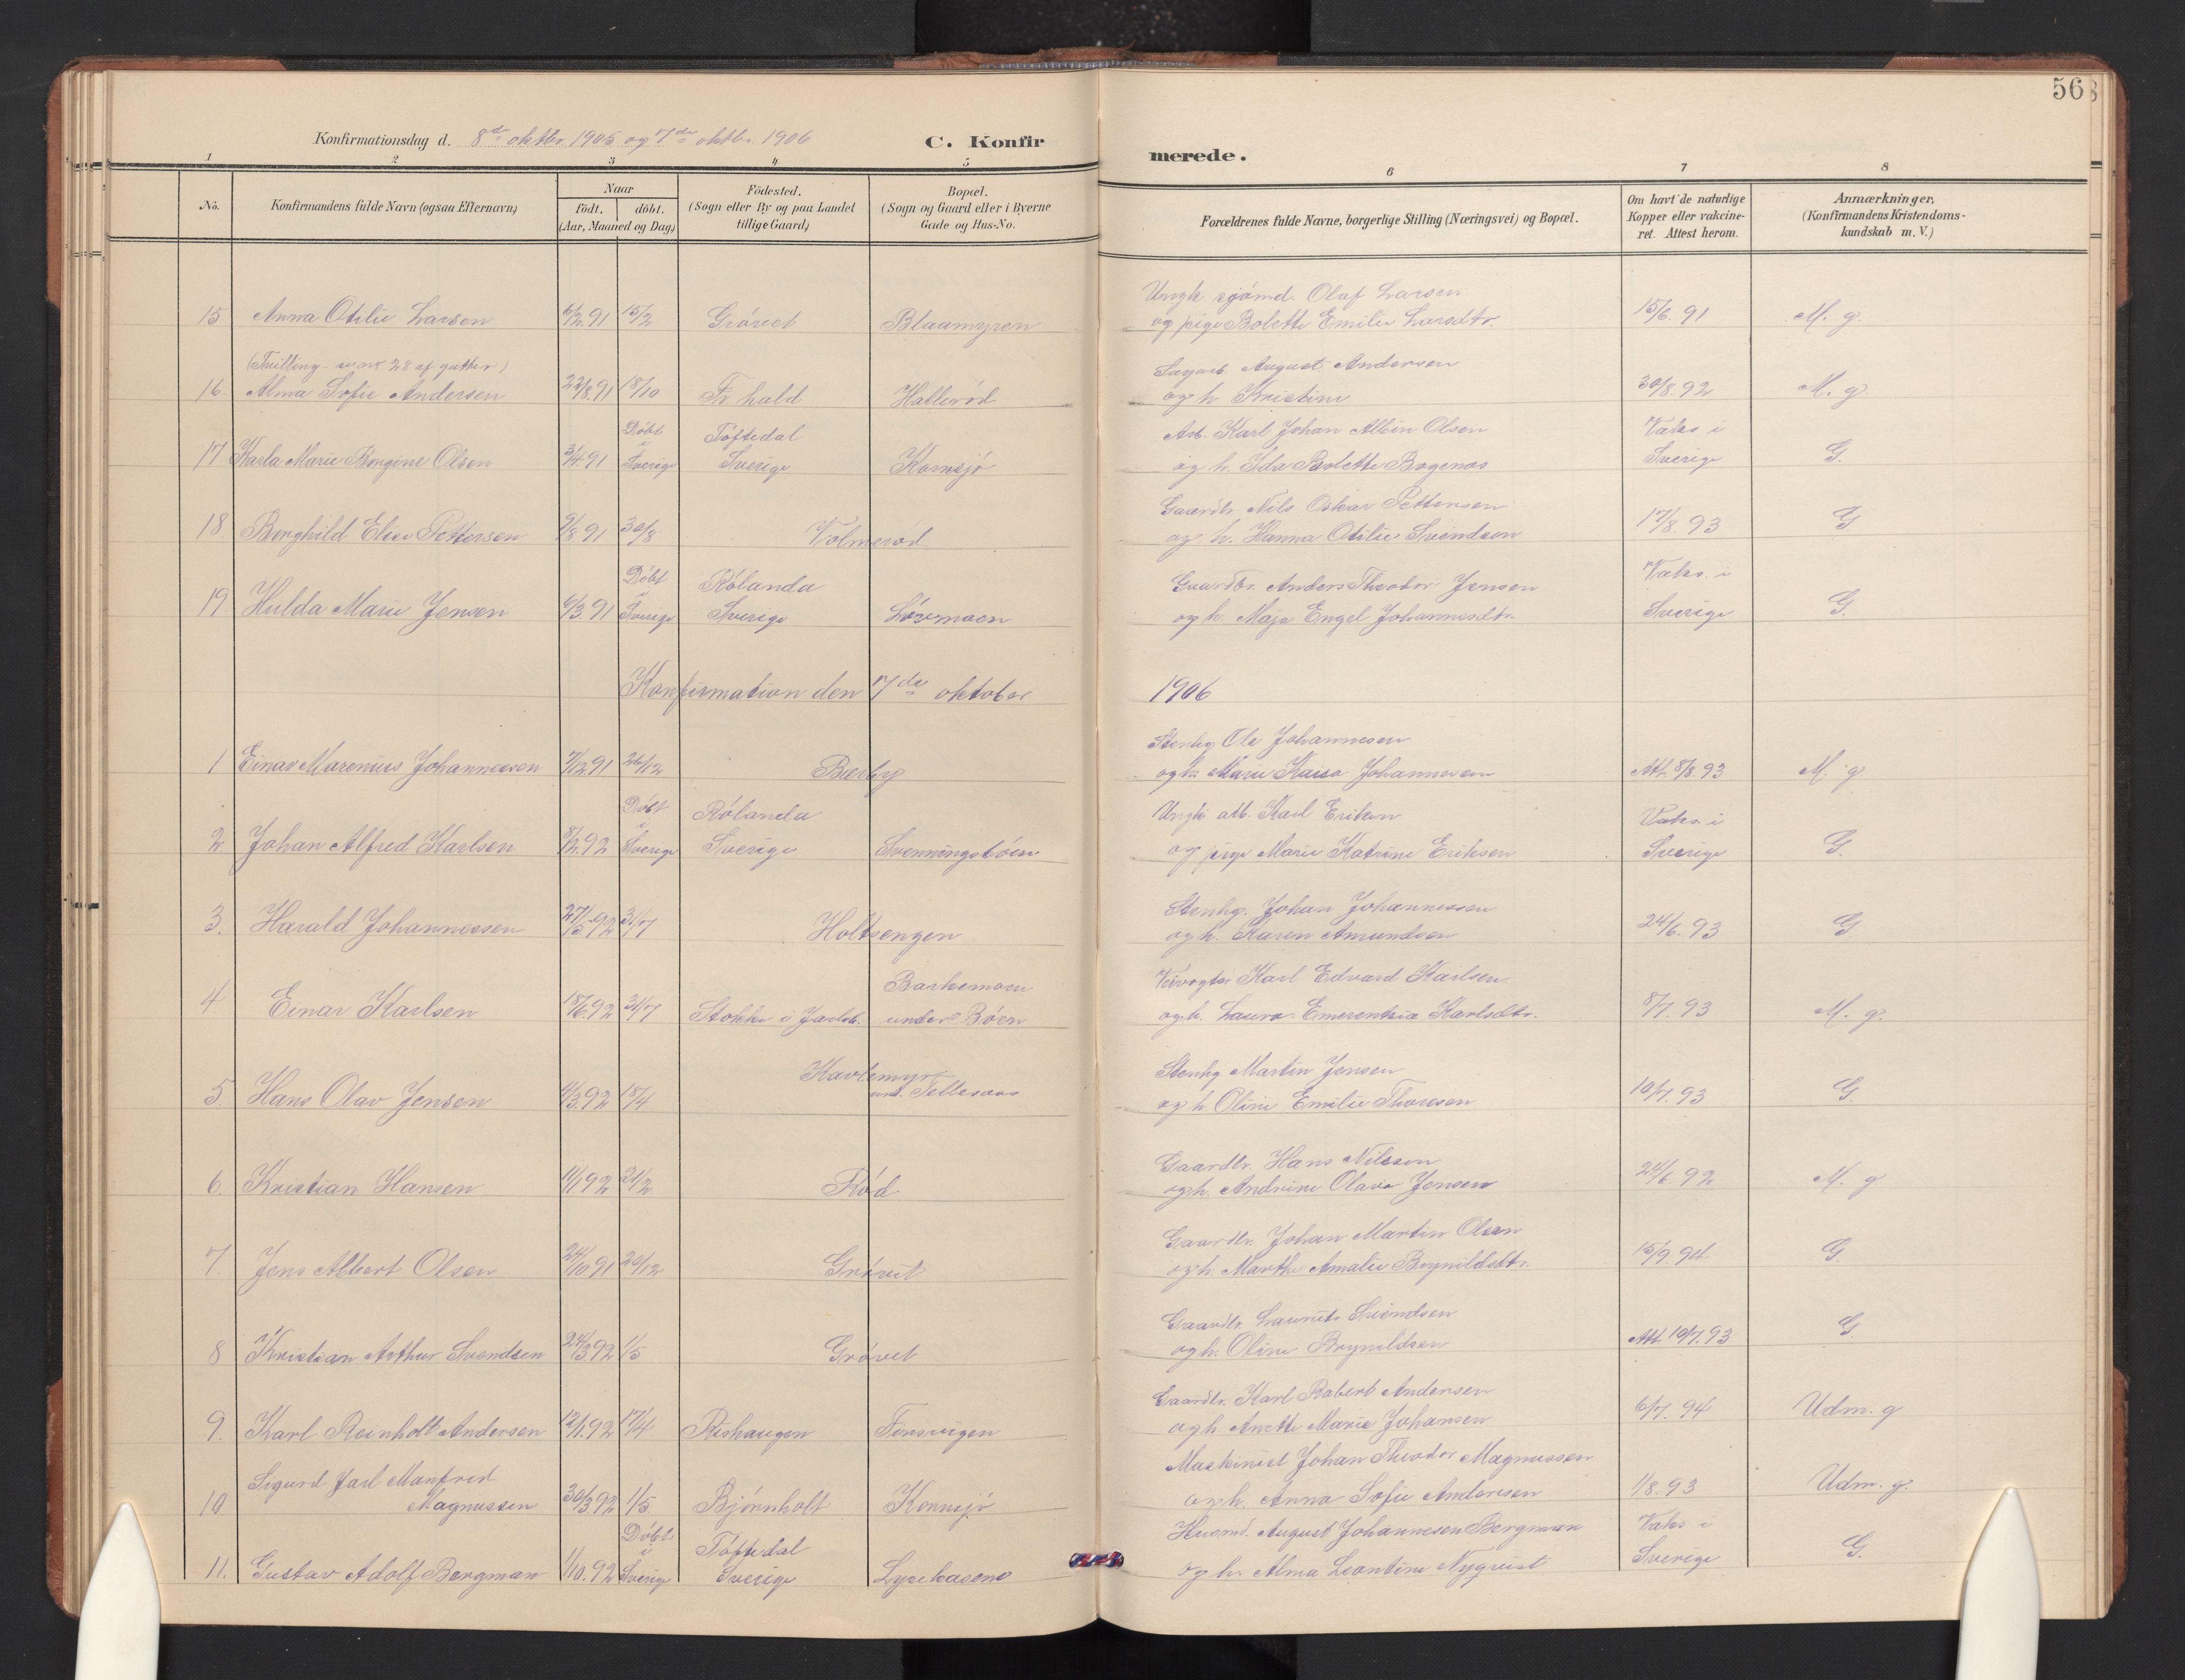 56
Konfirmationsdag d. 8de oktbr 1905 og 7de oktbr. 1906
C. Konfir
merede.
1 2 3 4 5 6 7 8
No.
Konfirmandens fulde Navn (ogsaa Efternavn)
Naar
födt. döbt.
(Aar, Maaned og Dag)
Födested.
(Sogn eller By og paa Landet
tillige Gaard)
Bopæl.
(Sogn og Gaard eller i Byerne
Gade og Hus-No.
Forældrenes fulde Navne, borgerlige Stilling (Næringsvei) og Bopæl.
Om havt de naturlige
Kopper eller vakcine-
ret. Attest herom.
Anmærkninger,
(Konfirmandens Kristendoms-
kundskab m. V.)
Ungk. sjömd. Olaf Larsen
15 Anna Otilie Larsen 6/2.91 15/2 Grövet Blaamyren og pige Bolette Emilie Larsdtr. 15/6. 91 M. g.
(Tvilling - se nr 28 af gutter)
Sagarb. August Andersen
16. Alma Sofie Andersen 22/8.91 18/10 Fr.hald Hallerød og h. Kristine 30/8.92 M. g.
Döbt i Toftedal Arb. Karl Johan Albin Olsen Vaks i
17 Karla Marie Borgine Olsen 3/4.91 Sverige Sverige Kornsjø og h. Ida Bolette Bogenæs Sverige G.
Gaardbr. Nils Oskar Pettersen
18 Borghild Elise Pettersen 9/8.91 30/8 Volmerød og h. Hanna Otilie Svendsen 17/8.93 G
Döbt i Rölanda Gaardbr. Anders Theodor Jensen Vaks. i
19 Hulda Marie Jensen 6/3.91 Sverige Sverige Lövmoen og h. Maja Engel Johannesdtr. Sverige G.
Konfirmation den 7de oktober 1906
Stenhg Ole Johannesen
1 Einar Marenius Johannessen 7/12.91 26/12 Bærby og h. Marie Kaisa Johannesen Att. 8/8.93 M. g
Döbt i Rölanda Ungk. arb. Karl Eriksen Vaks. i
2 Johan Alfred Karlsen 8/2.92 Sverige Sverige Svenningsböen og pige Marie Katrine Eriksen Sverige G.
Stenhg. Johan Johannessen
3. Harald Johannessen 27/5.92 31/7 Holtsengen og h. Karen Amundsen 24/6.93 G
Barkemoen Veivogter Karl Edvard Karlsen
4 Einar Karlsen 18/6.92 31/7 Stokke i Jarlsb. under Böen og h. Laura Emerentsia Karlsdtr. 8/7.93 M. g.
Kavlemyr Stenhg Martin Jensen
5. Hans Olav Jensen 4/3.92 18/4 und. Tellesaas og h. Oline Emilie Thoresen 10/7.93 G.
Gaardbr. Hans Nilsson
6. Kristian Hansen 11/1 92 21/2 Röd og h. Andrine Olava Jensen 24/6.92 M. g
Gaardbr. Johan Martin Olsen
7. Jens Albert Olsen 24/10 91 20/12 Grövet og h. Marthe Amalie Brynildsdtr. 15/9.94 G.
Gaardbr. Laurits Svendsen
8 Kristian Arthur Svendsen 24/3.92 1/5 Grövet og h. Oline Brynildsen Att. 10/7.93 G.
Gaardbr. Karl Robert Andersen
9. Karl Reinholt Andersen 12/1.92 17/4 Rishaugen Finsvigen og h. Anette Marie Johansen 6/7. 94 Udm. g
Sigurd Jarl Manfred Maskinist Johan Theodor Magnussen
10 Magnussen 30/3.92 1/5. Bjørnholt Kornsjø og h. Anna Sofie Andersen 1/8.93 Udm. g.
Döbt i Töftedal Husmd. August Johannesen Bergman Vaks i
11. Gustav Adolf Bergman 1/10.92 Sverige Sverige Lysekasene og h. Alma Leontine Nyquist Sverige G.